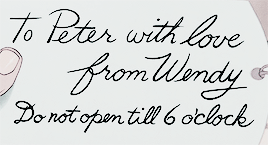 To Peter with love
from Wendy
Do not open till 6 o'clock